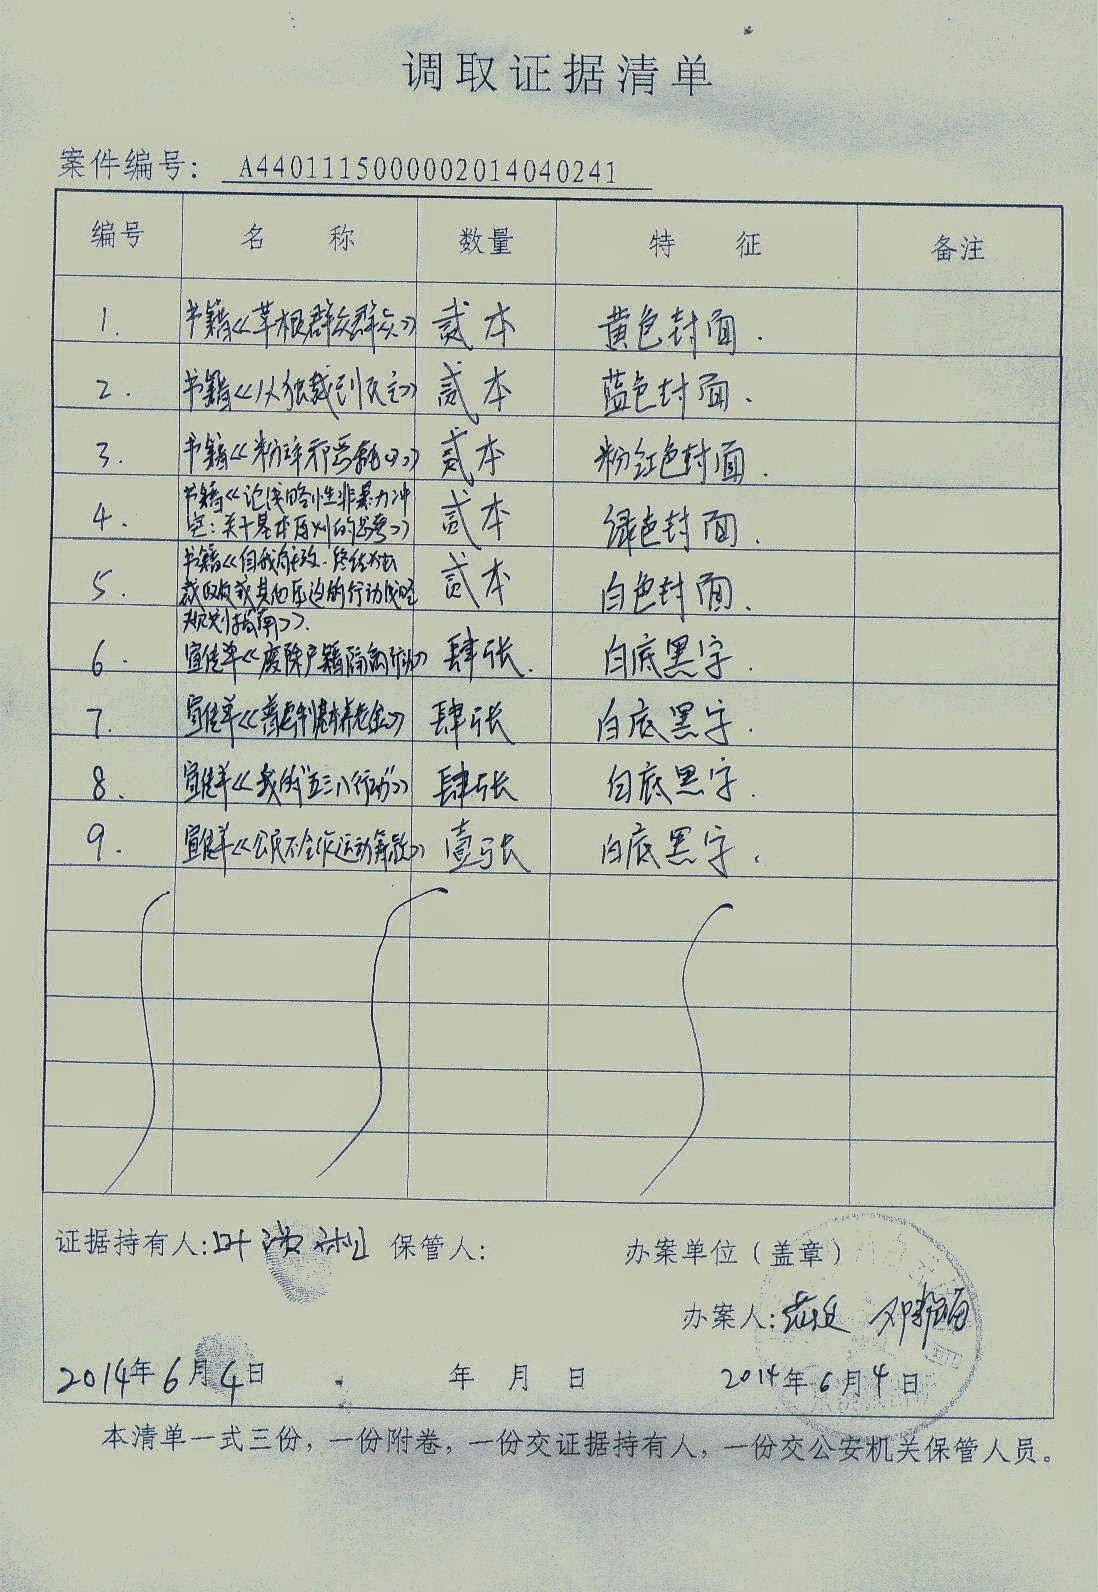 调取证据清单
案件编号: A4401115000002014040241
编号 名 称 数量 特 征 备注
1. 书籍《草根群众群众》 贰本 黄色封面.
2. 书籍《从独裁到民主》 贰本 蓝色封面.
3. 书籍《粉碎邪恶 》 贰本 粉红色封面.
4. 书籍《论战略性非暴力冲
突:关于基本原则的思考》 贰本 绿色封面.
5. 书籍《自我解放.终结独
裁政权或其他压迫的行动战略
规划指南》. 贰本 白色封面.
6. 宣传单《废除户籍隔离行动》 肆张. 白底黑字.
7. 宣传单《普惠制基本养老金》 肆张 白底黑字.
8. 宣传单《我的"五三八行动"》 肆张 白底黑字.
9. 宣传单《公民不合作运动 》 壹张 白底黑字.
证据持有人: 保管人: 办案单位(盖章)
办案人:
2014年6月4日 年 月 日 2014年6月4日
本清单一式三份,一份附卷,一份交证据持有人,一份交公安机关保管人员。